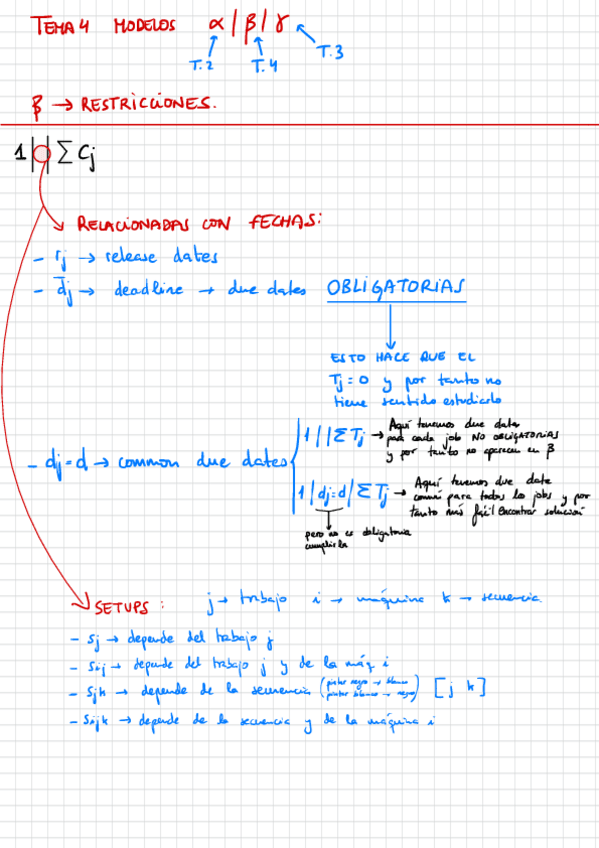 TEMA 4 MODELOS α | β | γ
T.2 T.4 T.3
β → RESTRICCIONES.
1 | | Σ Cj
RELACIONADAS CON FECHAS:
- rj → release dates
- d̄j → deadline → due dates OBLIGATORIAS
ESTO HACE QUE EL
Tj = 0 y por tanto no
tiene sentido estudiarlo
- dj = d → common due dates
1 | | Σ Tj → Aquí tenemos due dates
para cada job NO OBLIGATORIAS
y por tanto no aparecen en β
1 | dj = d | Σ Tj → Aquí tenemos due date
común para todos los jobs y por
tanto más fácil encontrar solución
pero no es obligatoria
cumplirla
SETUPS: j → trabajo i → máquina k → secuencia
- Sj → depende del trabajo j
- Sij → depende del trabajo j y de la máq i
- Sjk → depende de la secuencia (pintar negro → blanco
pintar blanco → negro) [j k]
- Sijk → depende de la secuencia y de la máquina i